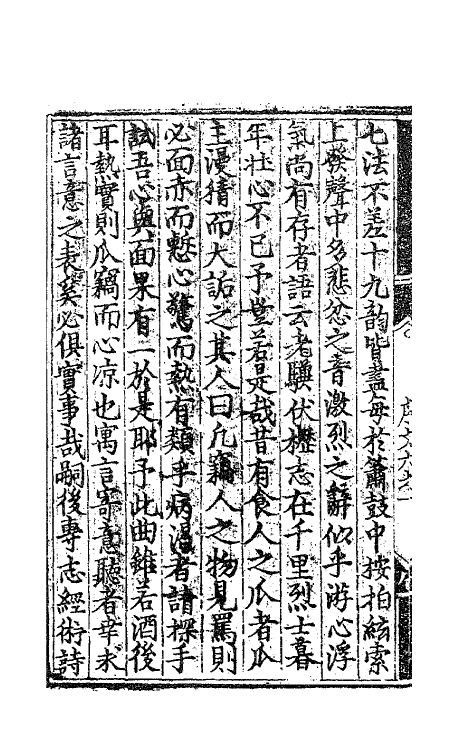 七法不差十九韵皆盡每於簫鼓中按拍絃索
上發聲中多悲忿之音激烈之辭似乎游心浮
氣尚有存者語云老驥伏櫪志在千里烈士暮
年壮心不已予豈若是哉昔有食人之瓜者瓜
主漫猜而大詬之其人曰凡竊人之物見罵則
必面赤而慙心驚而熱有類乎病渴者請探手
試吾心與面果有一於是耶予此曲雖若酒後
耳熱實則瓜竊而心凉也寓言寄意聽者幸未
諸言意之表奚必俱實事哉嗣後專志經術詩